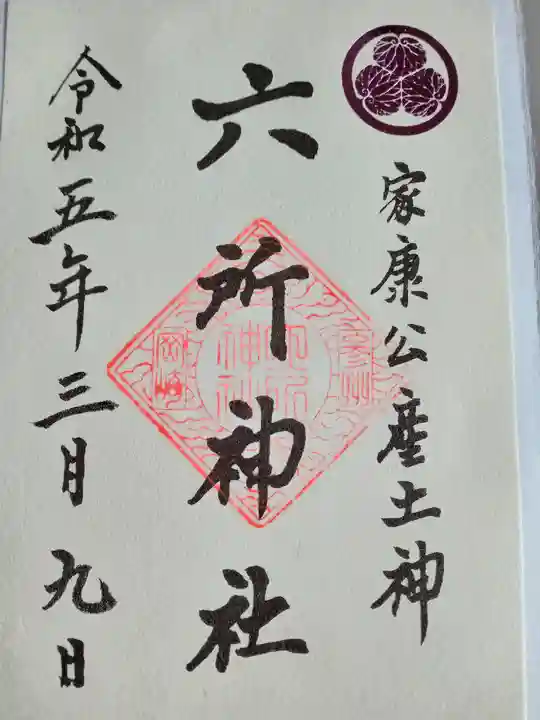 家康公産土神
六所神社
令和五年三月九日
参州
六所神社
岡崎